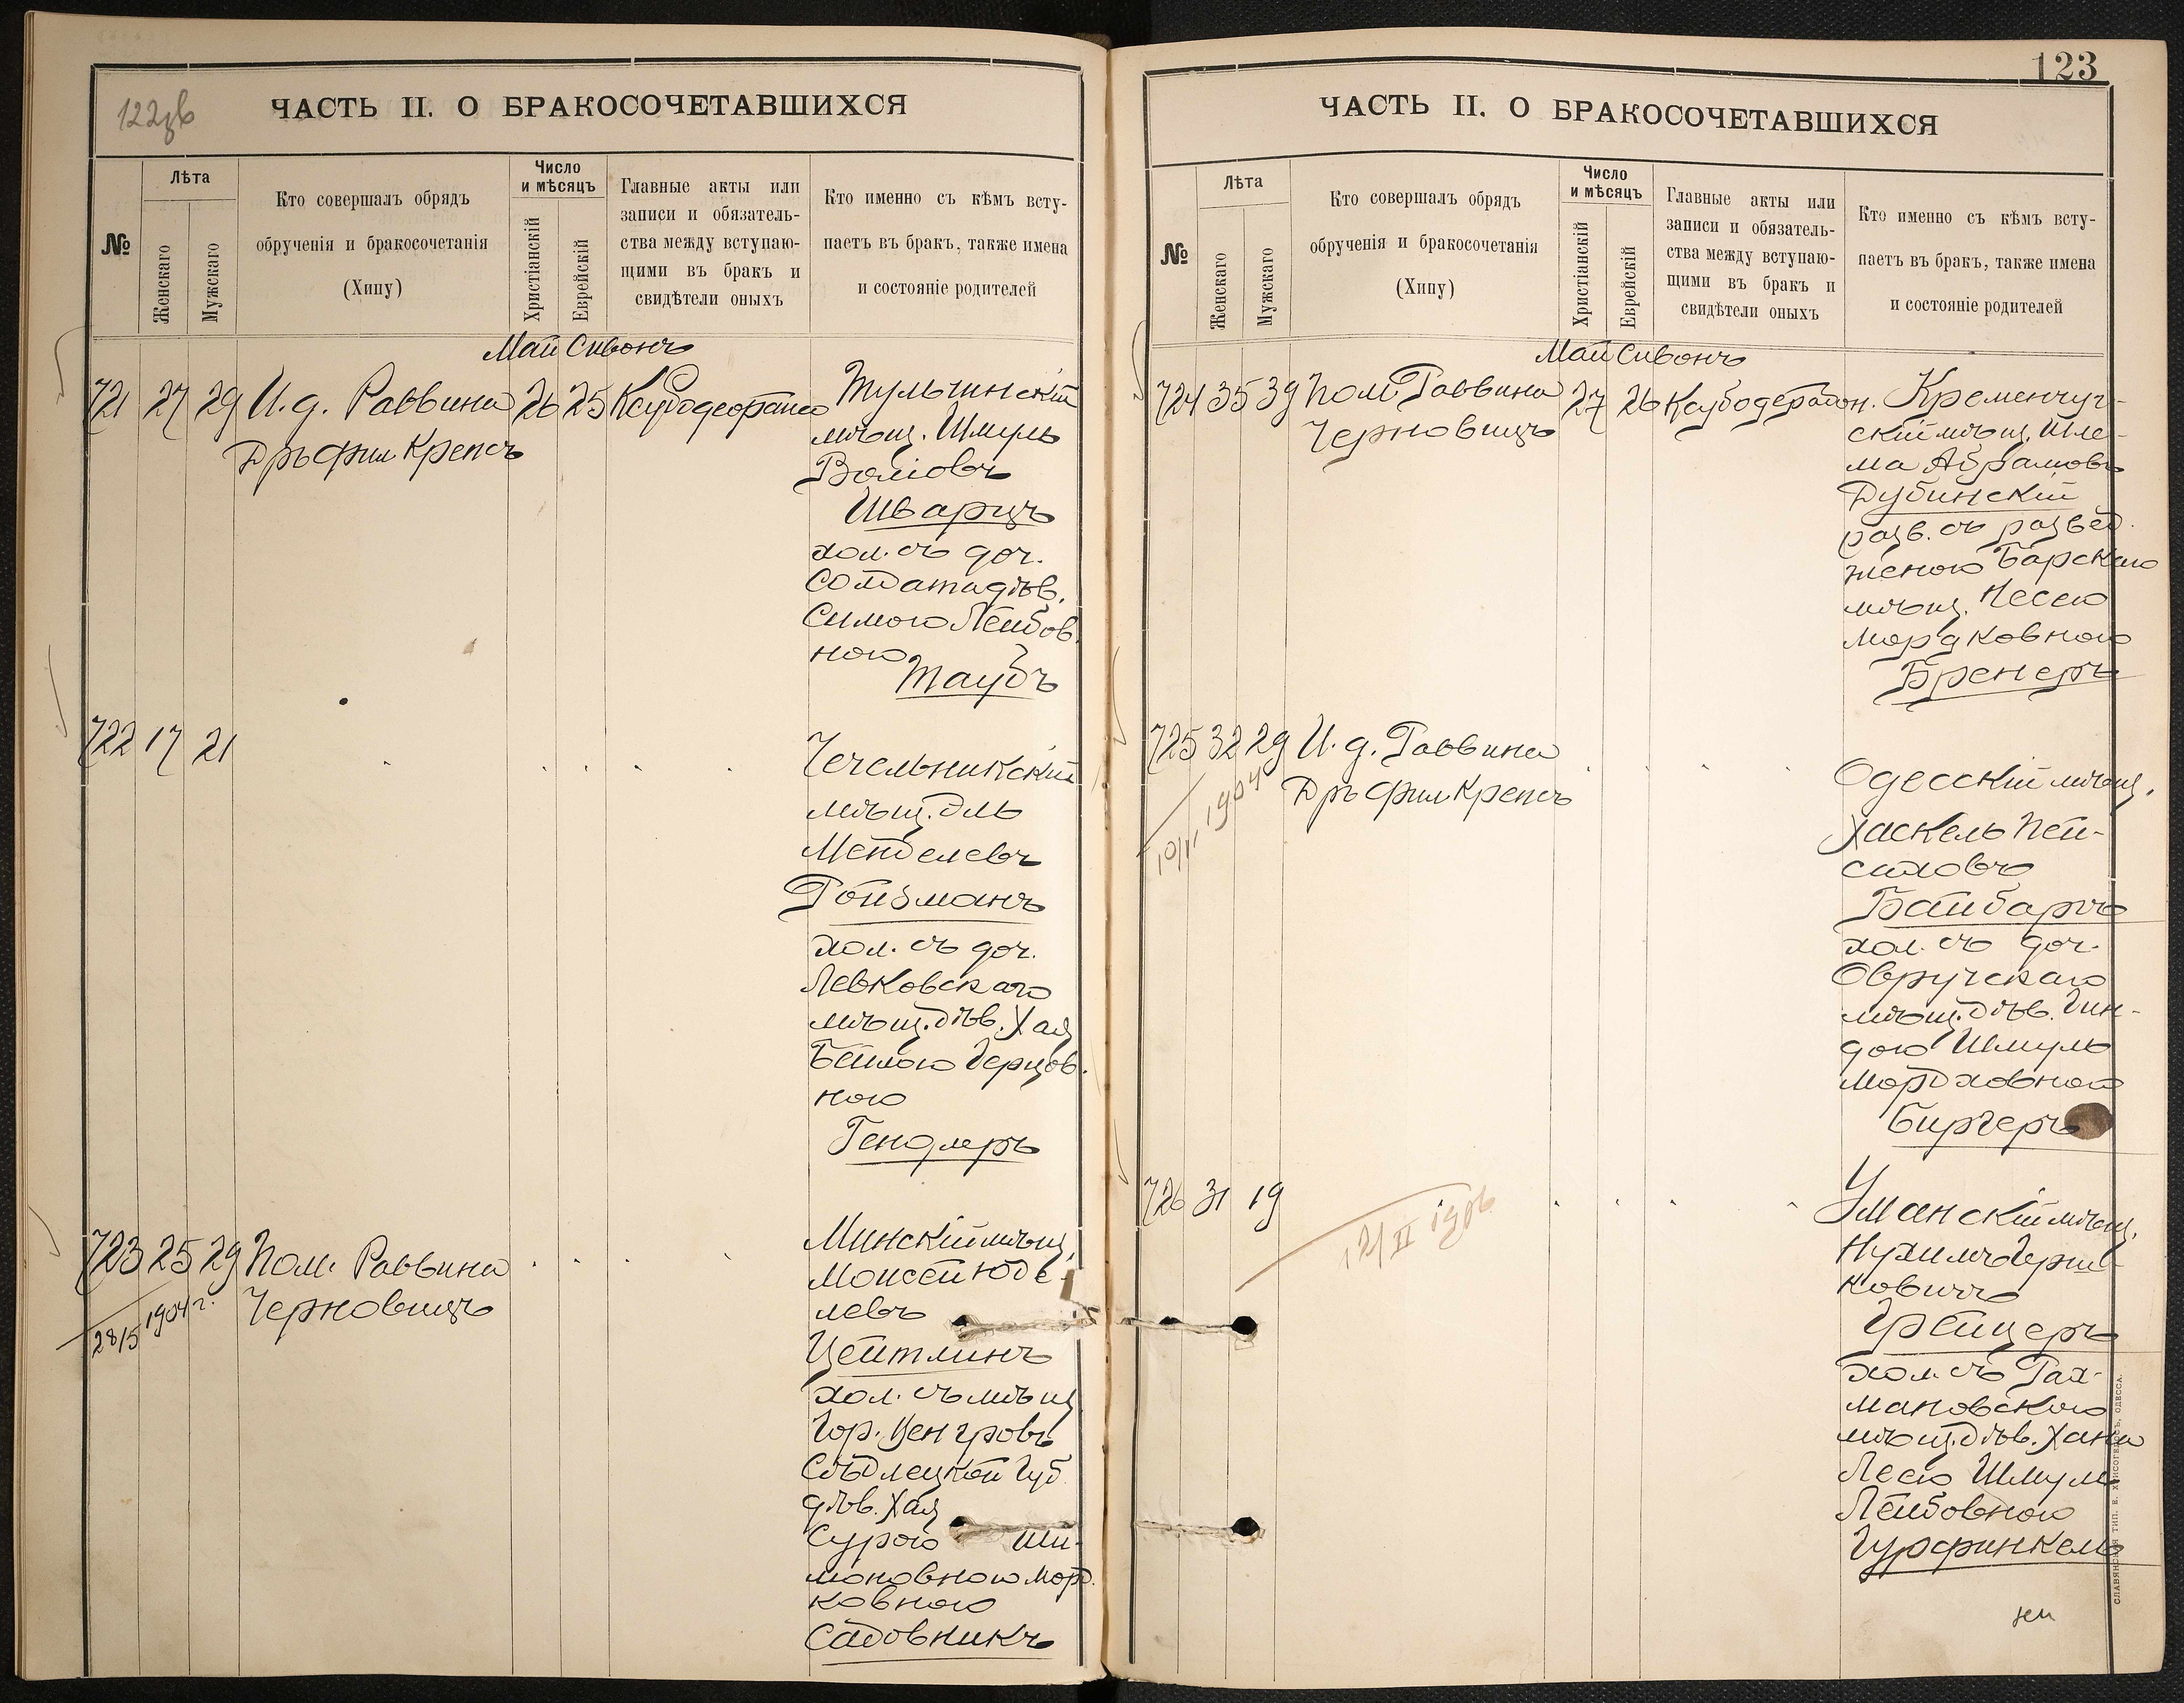 122зв
ЧАСТЬ II. О БРАКОСОЧЕТАВШИХСЯ
№
Лѣта
Женскаго
Мужскаго
Кто совершалъ обрядъ
обрученія и бракосочетанія
(Хипу)
Число
и мѣсяцъ
Христіанскій
Еврейскій
Главные акты или
записи и обязатель-
ства между вступаю-
щими въ бракъ и
свидѣтели оныхъ
Кто именно съ кѣмъ всту-
паетъ въ бракъ, также имена
и состояніе родителей
Май Сивонъ
721 27 29 И. д. Раввина 26 25
Дръ Фил Крепсъ
Тульчинскій
мѣщ. Шмуль
Волковъ
Шварцъ
хол. съ доч.
Солдата дѣв.
Симою Лейбов.
ною
Таубъ
722 17 21
Чечельникскій
мѣщ. Эль
Менделевъ
Ройзманъ
хол. съ доч.
Левковскаго
мѣщ. дѣв. Хая
Бейлою Герцов.
ною
Гендлеръ
723 25 29 Пом. Раввина
Черновицъ
28/5 1904 г.
Минскій мѣщ.
Моисей Юде-
левъ
Цейтлинъ
хол. съ мѣщ.
гор. Венгровъ
Сѣдлецкой губ.
дѣв. Хая
Сурою Ши-
моновною Морд.
ковною
Садовникъ
123
ЧАСТЬ II. О БРАКОСОЧЕТАВШИХСЯ
№
Лѣта
Женскаго
Мужскаго
Кто совершалъ обрядъ
обрученія и бракосочетанія
(Хипу)
Число
и мѣсяцъ
Христіанскій
Еврейскій
Главные акты или
записи и обязатель-
ства между вступаю-
щими въ бракъ и
свидѣтели оныхъ
Кто именно съ кѣмъ всту-
паетъ въ бракъ, также имена
и состояніе родителей
Май Сивонъ
724 35 39 Пом. Раввина 27 26
Черновицъ
Кременчуг-
скій мѣщ. Шле-
ма Абрамовъ
Дубинскій
разв. съ развед.
женою Барскаго
мѣщ. Песею
Мордковною
Бренеръ
725 32 29 И. д. Раввина
Дръ Фил Крепсъ
10/II 1904
Одесскій мѣщ.
Хаскель Пей-
саховъ
Байбаръ
хол. съ доч.
Овручскаго
мѣщ. дѣв. Гин-
дою Шмуль
Мордховною
Биргеръ
726 31 19
12/II 1906
Уманскій мѣщ.
Нухимъ
ковичъ
Грейцеръ
хол. съ Рах-
мановскаго
мѣщ. дѣв. Хана
Леею Шмуль
Лейбовною
Гурфинкель
СЛАВЯНСКАЯ ТИП. Е. ХРИСОГЕЛОСЪ, ОДЕССА.